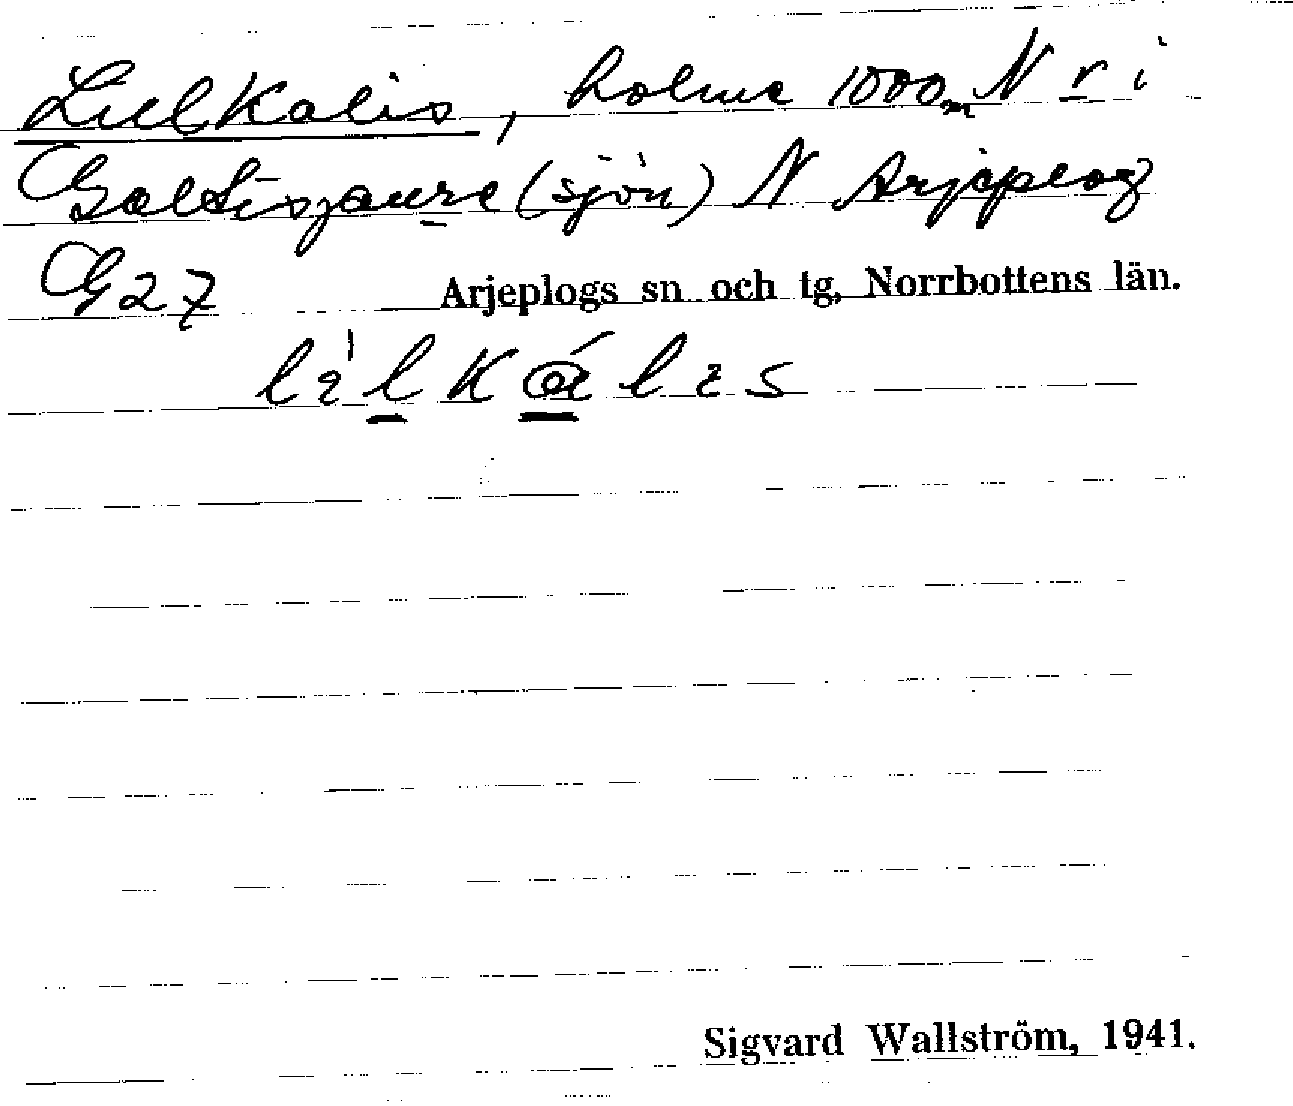 Lulkalis, holme 1000 m N r i
Galtisjaure (sjön) N Arjeplog
G 27 Arjeplogs sn och tg, Norrbottens län.
Sigvard Wallström, 1941.